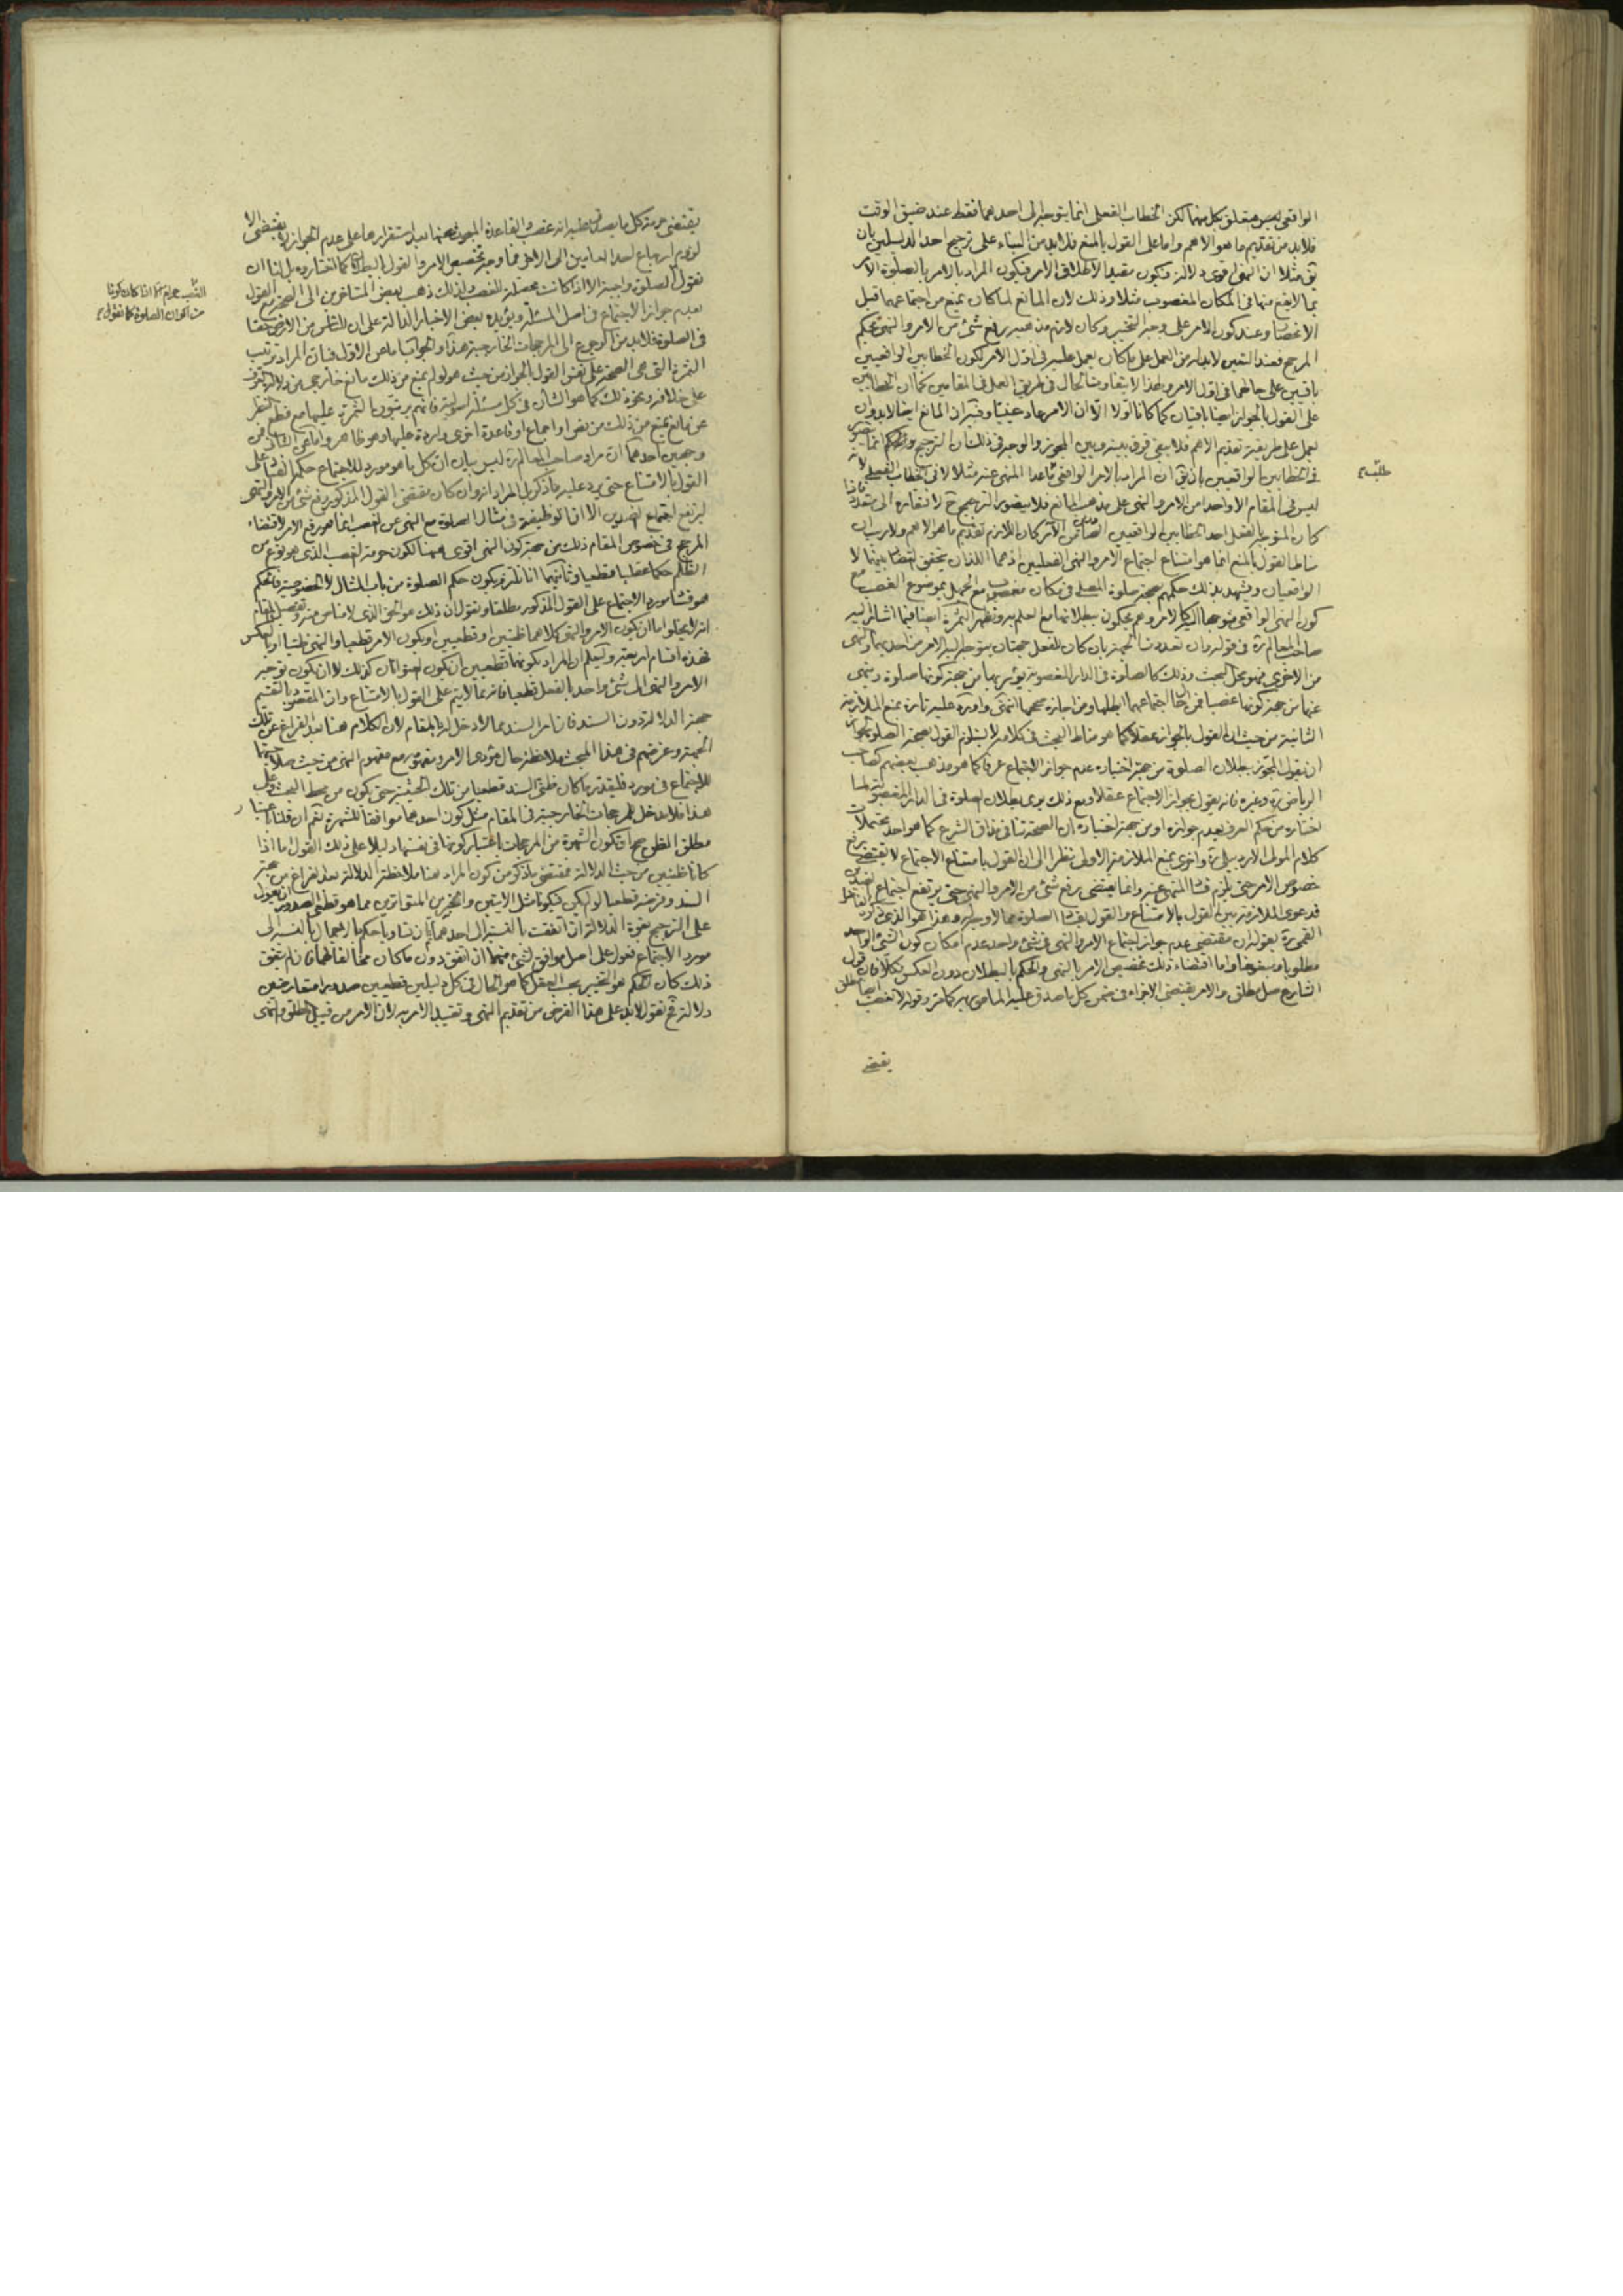 الواقعى ليس متعلق بكل منهما لكن الخطاب الفعلى انما يتوجه الى احدهما فقط عند ضيق الوقت
فلابد من تقديم ما هو الاهم واما على القول بالمنع فلابد من البناء على ترجيح احد الدليلين بان
مثلا ان النهى اقوى دلالة فيكون مقيدا لاطلاق الامر فيكون المراد بالامر بالصلوة الامر
بما لا يقع منها فى المكان المغصوب مثلا وذلك لان المانع لما كان يمنع من اجتماعهما قبل
الانحصار وعند كون الامر على وجه التخيير وكان لازم مذهبه رفع شئ من الامر والنهى بحكم
المرجح فعند التعين لابد له من العمل على ما كان يعمل عليه فى اول الامر لكون الخطابين الواقعيين
باقيين على حالهما فى اول الامر ولهذا لا يتفاوت الحال فى طريق العمل فى المقامين كما ان الخطابين
على القول بالجواز ايضا باقيان كما كانا اولا الا ان الامر صار عينيا فان المانع ايضا لابد وان
يعمل على طريقة تقديم الاهم فلا يبقى فرق بينه وبين المجوز والوجه فى ذلك ان الترجيح والحكم انما
فى الخطابين الواقعيين بان ان المراد بالامر الواقعى ما عدا المنهى عنه مثلا لا فى الخطاب الفعلى
ليس فى المقام الا واحد من الامر والنهى على مذهب المانع فلا يتصور الترجيح لافتقاره الى متعدد
كان المتوجه بالفعل احد الخطابين الواقعيين كان اللازم تقديم ما هو الاهم ولا ريب ان
القول بالمنع انما هو امتناع اجتماع الامر والنهى الفعليين اذ هما اللذان يتحقق التضاد بينهما لا
الواقعيان ويشهد بذلك حكمهم بصحة صلوة المصلى فى مكان مغصوب مع الجهل بموضوع الغصب مع
كون النهى الواقعى موجها اليه كالامر وهم يحكمون ببطلانها مع العلم به وتظهر الثمرة ايضا فيما اشار اليه
صاحب المعالم ره فى قوله وان تعددت الجهة بان كان للفعل جهتان يتوجه اليه الامر من احديهما والنهى
من الاخرى فهو محل البحث وذلك كالصلوة فى الدار المغصوبة يؤمر بها من جهة كونها صلوة وينهى
عنها من جهة كونها غصبا فمن احال اجتماعهما ابطلها ومن اجازه صححها انتهى واورد عليه تارة بمنع الملازمة
الثانية من حيث ان القول بالجواز عقلا كما هو مناط البحث فى كلامه لا يستلزم القول بصحة الصلوة
ان يقول المجوز ببطلان الصلوة من جهة اختياره عدم جواز الاجتماع عرفا كما هو مذهب بعضهم كصاحب
الرياض ره وغيره فانه يقول بجواز الاجتماع عقلا ومع ذلك يرى بطلان الصلوة فى الدار المغصوبة لما
اختاره من حكم العرف بعدم جوازه او من جهة اختياره ان الصحة تنافى مذاق الشرع كما هو احد محتملات
كلام المولى الاردبيلى ره واخرى بمنع الملازمة الاولى نظرا الى ان القول بامتناع الاجتماع لا يقتضى رفع
خصوص الامر حتى يلزم فساد المنهى عنه وانما يقتضى رفع شئ من الامر والنهى حتى يرتفع اجتماع الضدين
فدعوى الملازمة بين القول بالامتناع والقول بفساد الصلوة مما لا وجه له وهذا هو الذى
القمى ره بقوله ان مقتضى عدم جواز اجتماع الامر والنهى فى شئ واحد عدم امكان كون الشئ الواحد
مطلوبا ومبغوضا واما اقتضاء ذلك تخصيص الامر بالنهى والحكم بالبطلان دون العكس فكلا فان قول
الشارع صل مطلق والامر يقتضى الاجزاء فى ضمن كل ما صدق عليه المامور به كما مر وقوله لا تغصب ايضا مطلق
يقتضى
يقتضى حرمة كل ما يصدق عليه انه غصب والقاعدة المبحوث عنها بعد استقرارها على عدم الجواز لا يقتضى الا
لزوم ارجاع احد العامين الى الاخر فما وجه تخصيص الامر والقول بالبطلان كما اختاروه بل لنا ان
نقول الصلوة واجبة الا اذا كانت محصلة للغصب ولذلك ذهب بعض المتاخرين الى الصحة مع القول
بعدم جواز الاجتماع فى اصل المسئلة ويؤيده بعض الاخبار الدالة على ان للناس من الارض حقا
فى الصلوة فلابد من الرجوع الى المرجحات الخارجية هذا والجواب اما عن الاول فبان المراد ترتب
الثمرة التى هى الصحة على نفس القول بالجواز من حيث هو لو لم يمنع من ذلك مانع خارجى من دلالة العرف
على خلافه ونحو ذلك كما هو الشأن فى كل مسئلة اصولية فانهم يرتبون الثمرة عليها مع قطع النظر
عن مانع يمنع من ذلك من نص او اجماع او قاعدة اخرى واردة عليها وهو ظاهر واما عن الثانى فمن
وجهين احدهما ان مراد صاحب المعالم ره ليس بيان ان كل ما هو مورد للاجتماع حكمه الفساد على
القول بالامتناع حتى يرد عليه ما ذكر بل المراد انه وان كان مقتضى القول المذكور رفع شئ من الامر والنهى
ليرتفع اجتماع الضدين الا ان الوظيفة فى مثال الصلوة مع النهى عن الغصب انما هو رفع الامر لاقتضاء
المرجح فى خصوص المقام ذلك من جهة كون النهى اقوى هيهنا لكون حرمة الغصب الذى هو نوع من
الظلم حكما عقليا قطعيا وثانيهما انا نلتزم بكون حكم الصلوة من باب المثال لا الخصوصية فالحكم
هو فساد مورد الاجتماع على القول المذكور مطلقا ونقول ان ذلك هو الحق الذى لا مناص منه وتفصيل المقام
انه لا يخلو اما ان يكون الامر والنهى كلاهما ظنيين او قطعيين او يكون الامر قطعيا والنهى ظنيا او بالعكس
فهذه اقسام اربعة وليعلم ان المراد بكونهما قطعيين ان يكون العنوانان كذلك لا ان يكون توجه
الامر والنهى الى شئ واحد بالفعل قطعيا فانه مما لا يتم على القول بالامتناع وان المقصود بالتقسيم
جهة الدلالة دون السند فان امر السند مما لا دخل له بالمقام لان الكلام هنا بعد الفراغ عن تلك
الجهة وغرضهم فى هذا المبحث ملاحظة حال مؤدى الامر ومفهومه مع مفهوم النهى من حيث صلاحيتهما
للاجتماع فى مورد فليقدر ما كان ظنى السند قطعيا من تلك الحيثية حتى يكون من محط البحث وعلى
هذا فلا مدخل للمرجحات الخارجية فى المقام مثل كون احدهما موافقا للشهرة نعم ان قلنا باعتبار
مطلق الظن صح ان تكون الشهرة من المرجحات باعتبار كونها فى نفسها دليلا على ذلك القول اما اذا
كانا ظنيين من حيث الدلالة فمقتضى ما ذكر من كون المراد هنا ملاحظة الدلالة بعد الفراغ من جهة
السند وفرضه قطعيا لو لم يكن فيكونا مثل الايتين والخبرين المتواترين مما هو قطعى الصدور ان يعول
على الترجيح بقوة الدلالة ان اتفقت بالنسبة الى احدهما وان تساويا حكم بالاجمال بالنسبة الى
مورد الاجتماع فيعول على اصل موافق لشئ منهما ان اتفق دون ما كان مخالفا لهما فان لم يتفق
ذلك كان الحكم هو التخيير بحسب العقل كما هو الحال فى كل دليلين قطعيين صدورا متعارضين
دلالة نقول لابد على هذا الفرض من تقديم النهى وتقييد الامر به لان الامر من قبيل المطلق والنهى